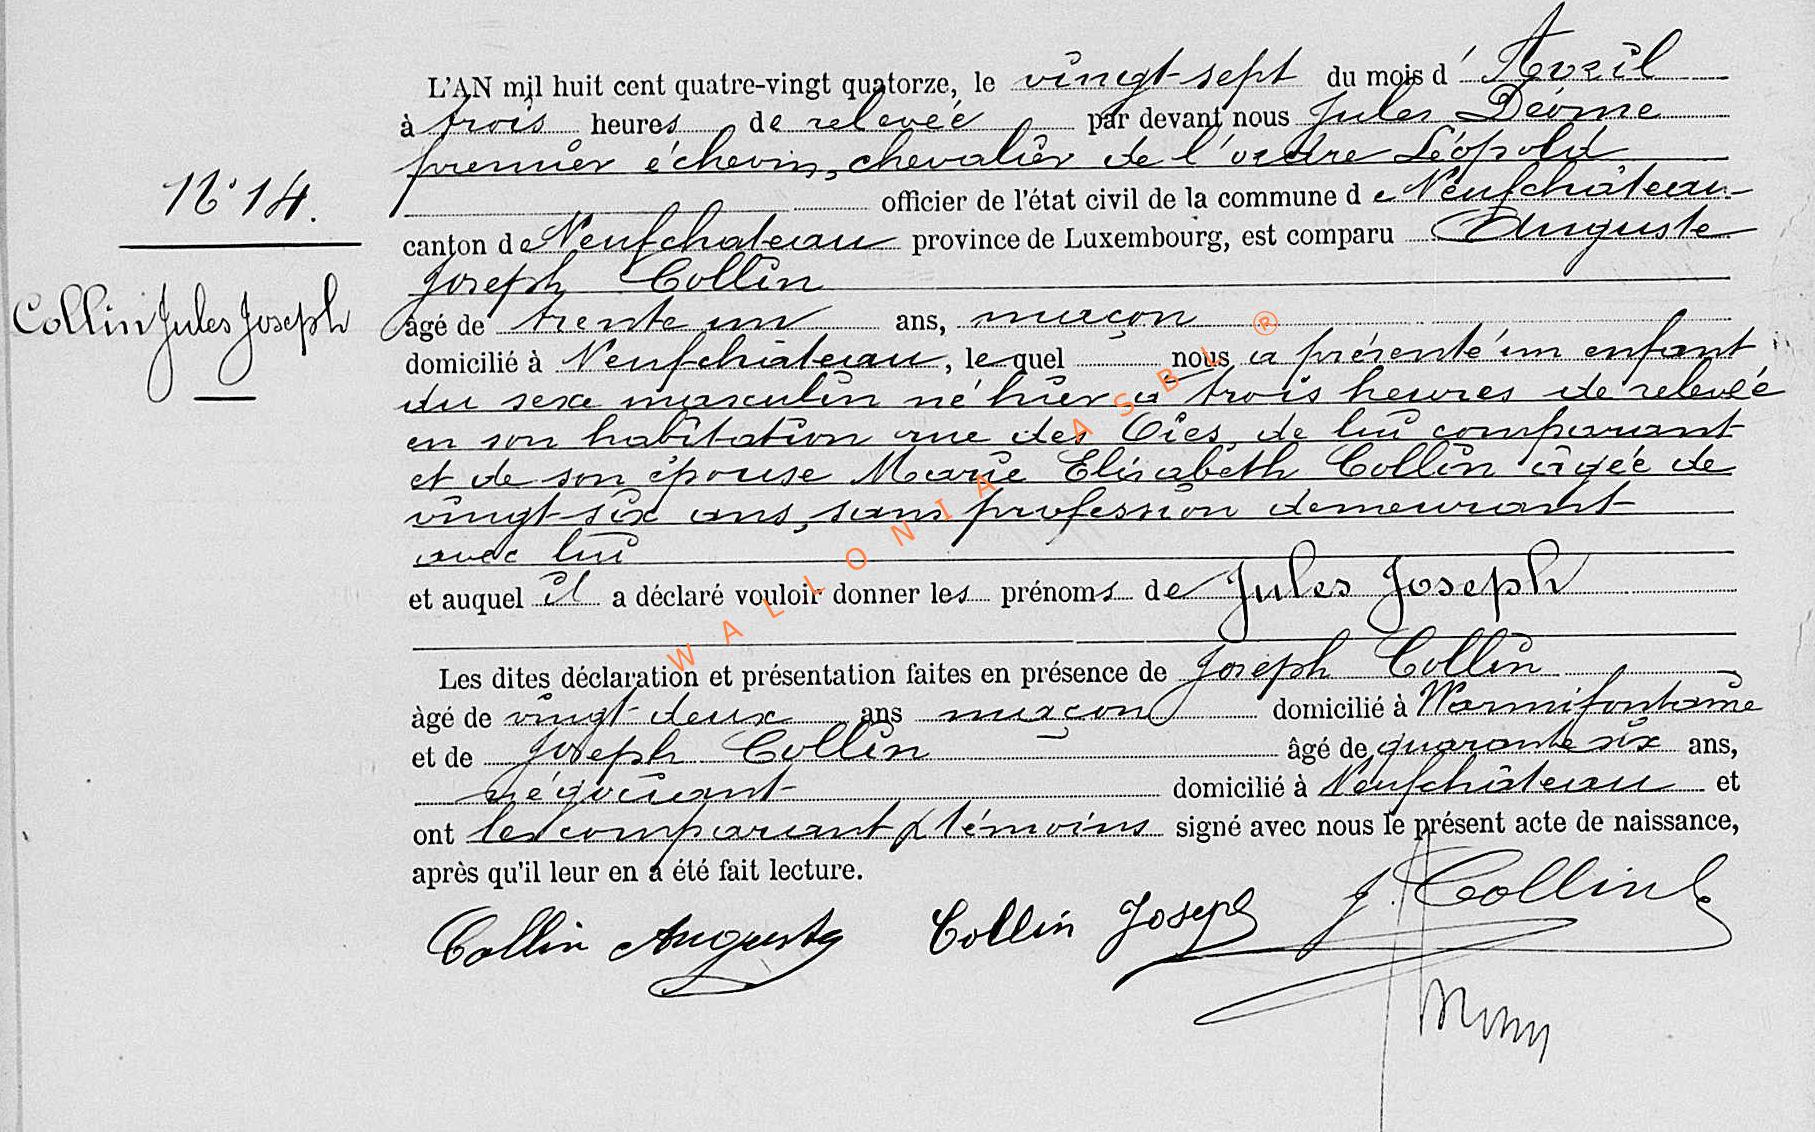 L'AN mil huit cent quatre-vingt quatorze, le vingt-sept du mois d'Avril
à trois heures de relevée par devant nous Jules Déome
premier échevin, chevalier de l'ordre Léopold
N° 14.
officier de l'état civil de la commune de Neufchâteau
canton de Neufchateau province de Luxembourg, est comparu Auguste
Joseph Collin
Collin Jules Joseph
âgé de trente un ans, maçon
domicilié à Neufchâteau, lequel nous a présenté un enfant
du sexe masculin né hier à trois heures de relevée
en son habitation rue des Oies, de lui comparant
et de son épouse Marie Elisabeth Collin âgée de
vingt-six ans, sans profession demeurant
avec lui
et auquel il a déclaré vouloir donner les prénoms de Jules Joseph
Les dites déclaration et présentation faites en présence de Joseph Collin
âgé de vingt-deux ans maçon domicilié à Warmifontaine
et de Joseph Collin âgé de quarante six ans,
négociant domicilié à Neufchâteau et
ont les comparant & témoins signé avec nous le présent acte de naissance,
après qu'il leur en a été fait lecture.
Collin Auguste Collin Joseph J. Collin
WALLONIA ASBL ®